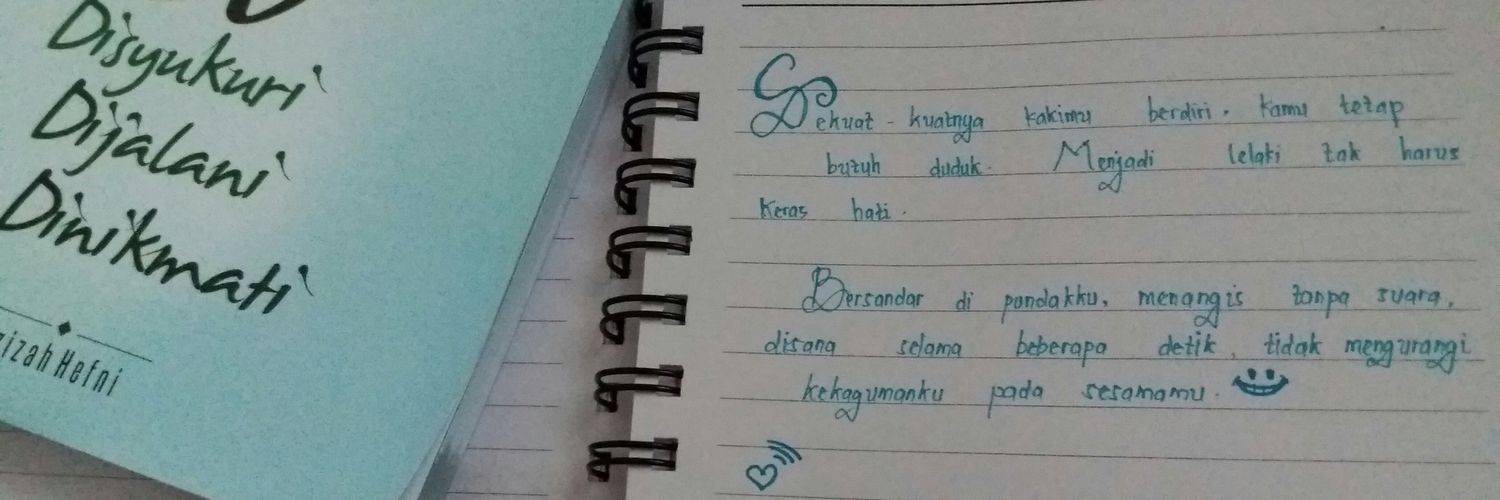 Disyukuri
Dijalani
Dinikmati
zizah Hefni
Sekuat-kuatnya kakimu berdiri. kamu tetap
butuh duduk. Menjadi lelaki tak harus
keras hati.
Bersandar di pundakku, menangis tanpa suara,
disana selama beberapa detik, tidak mengurangi
kekagumanku pada sesamamu.